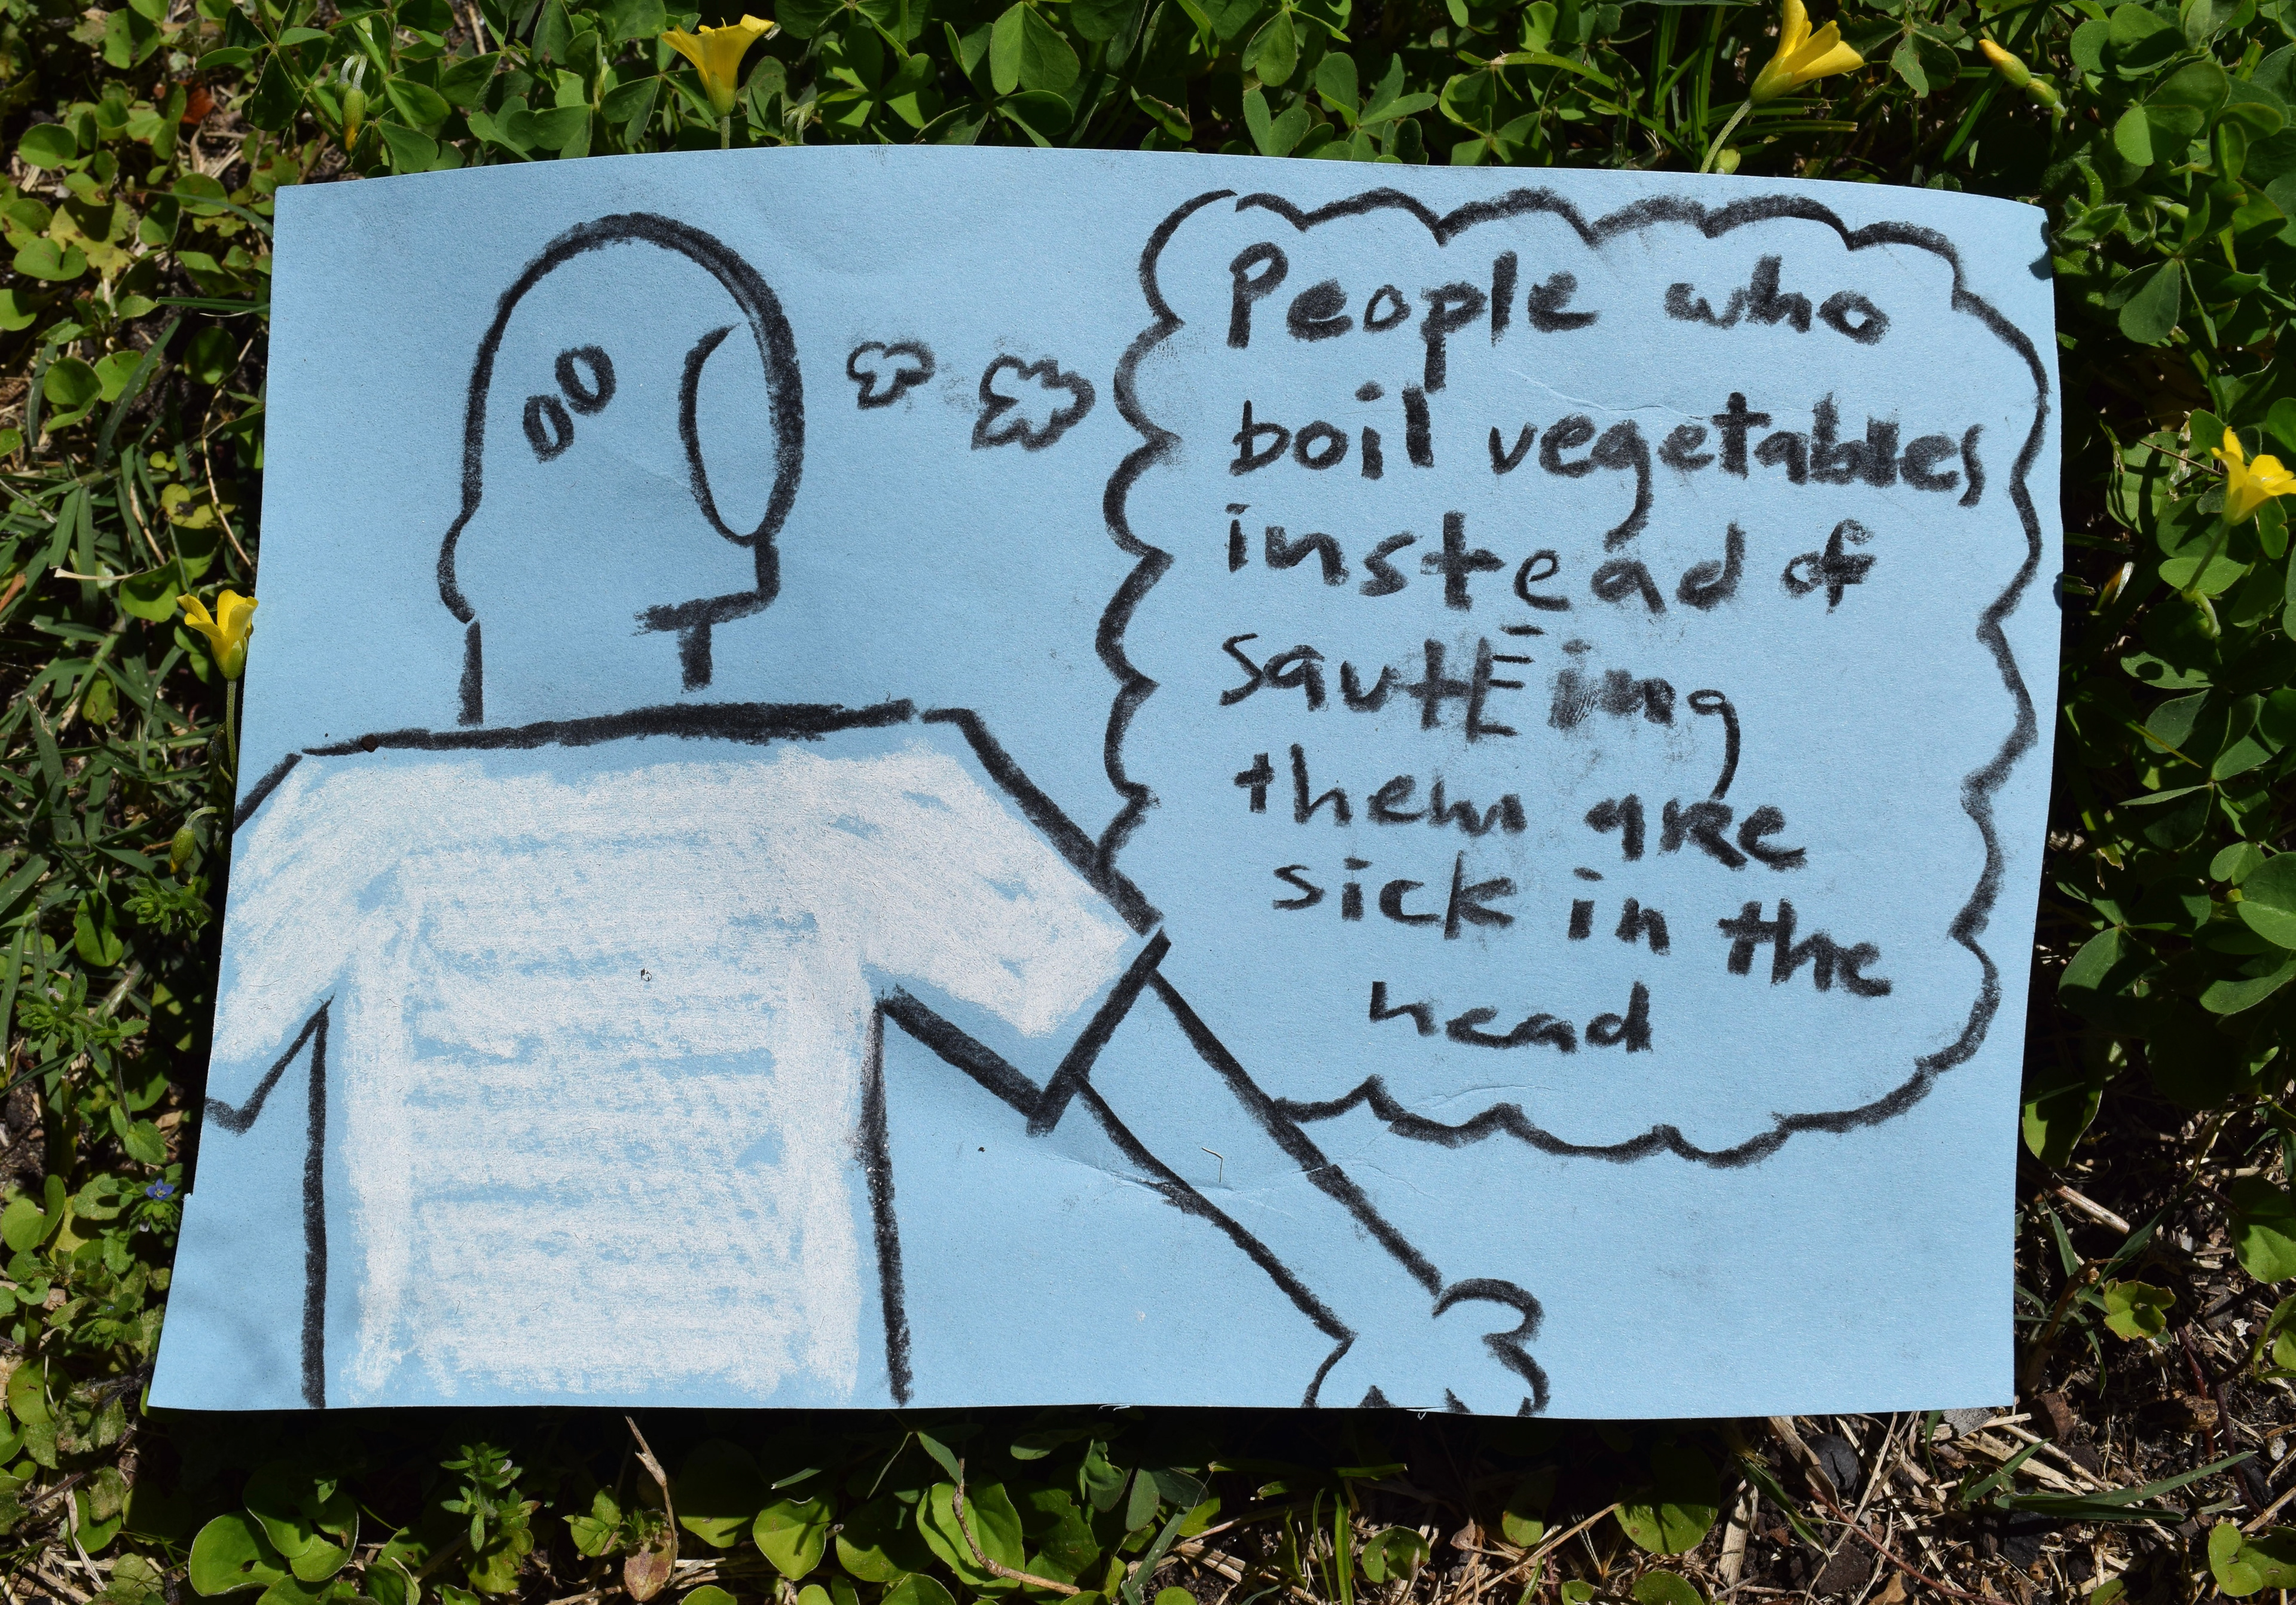 People who
boil vegetables
instead of
sautEing
them are
sick in the
head